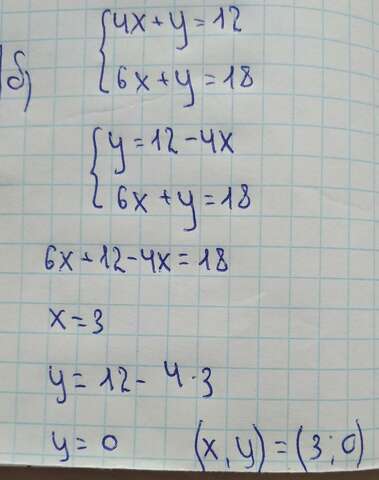 б)
4x+y=12
6x+y=18
y=12-4x
6x+y=18
6x+12-4x=18
x=3
y=12-4·3
y=0 (x,y)=(3;0)